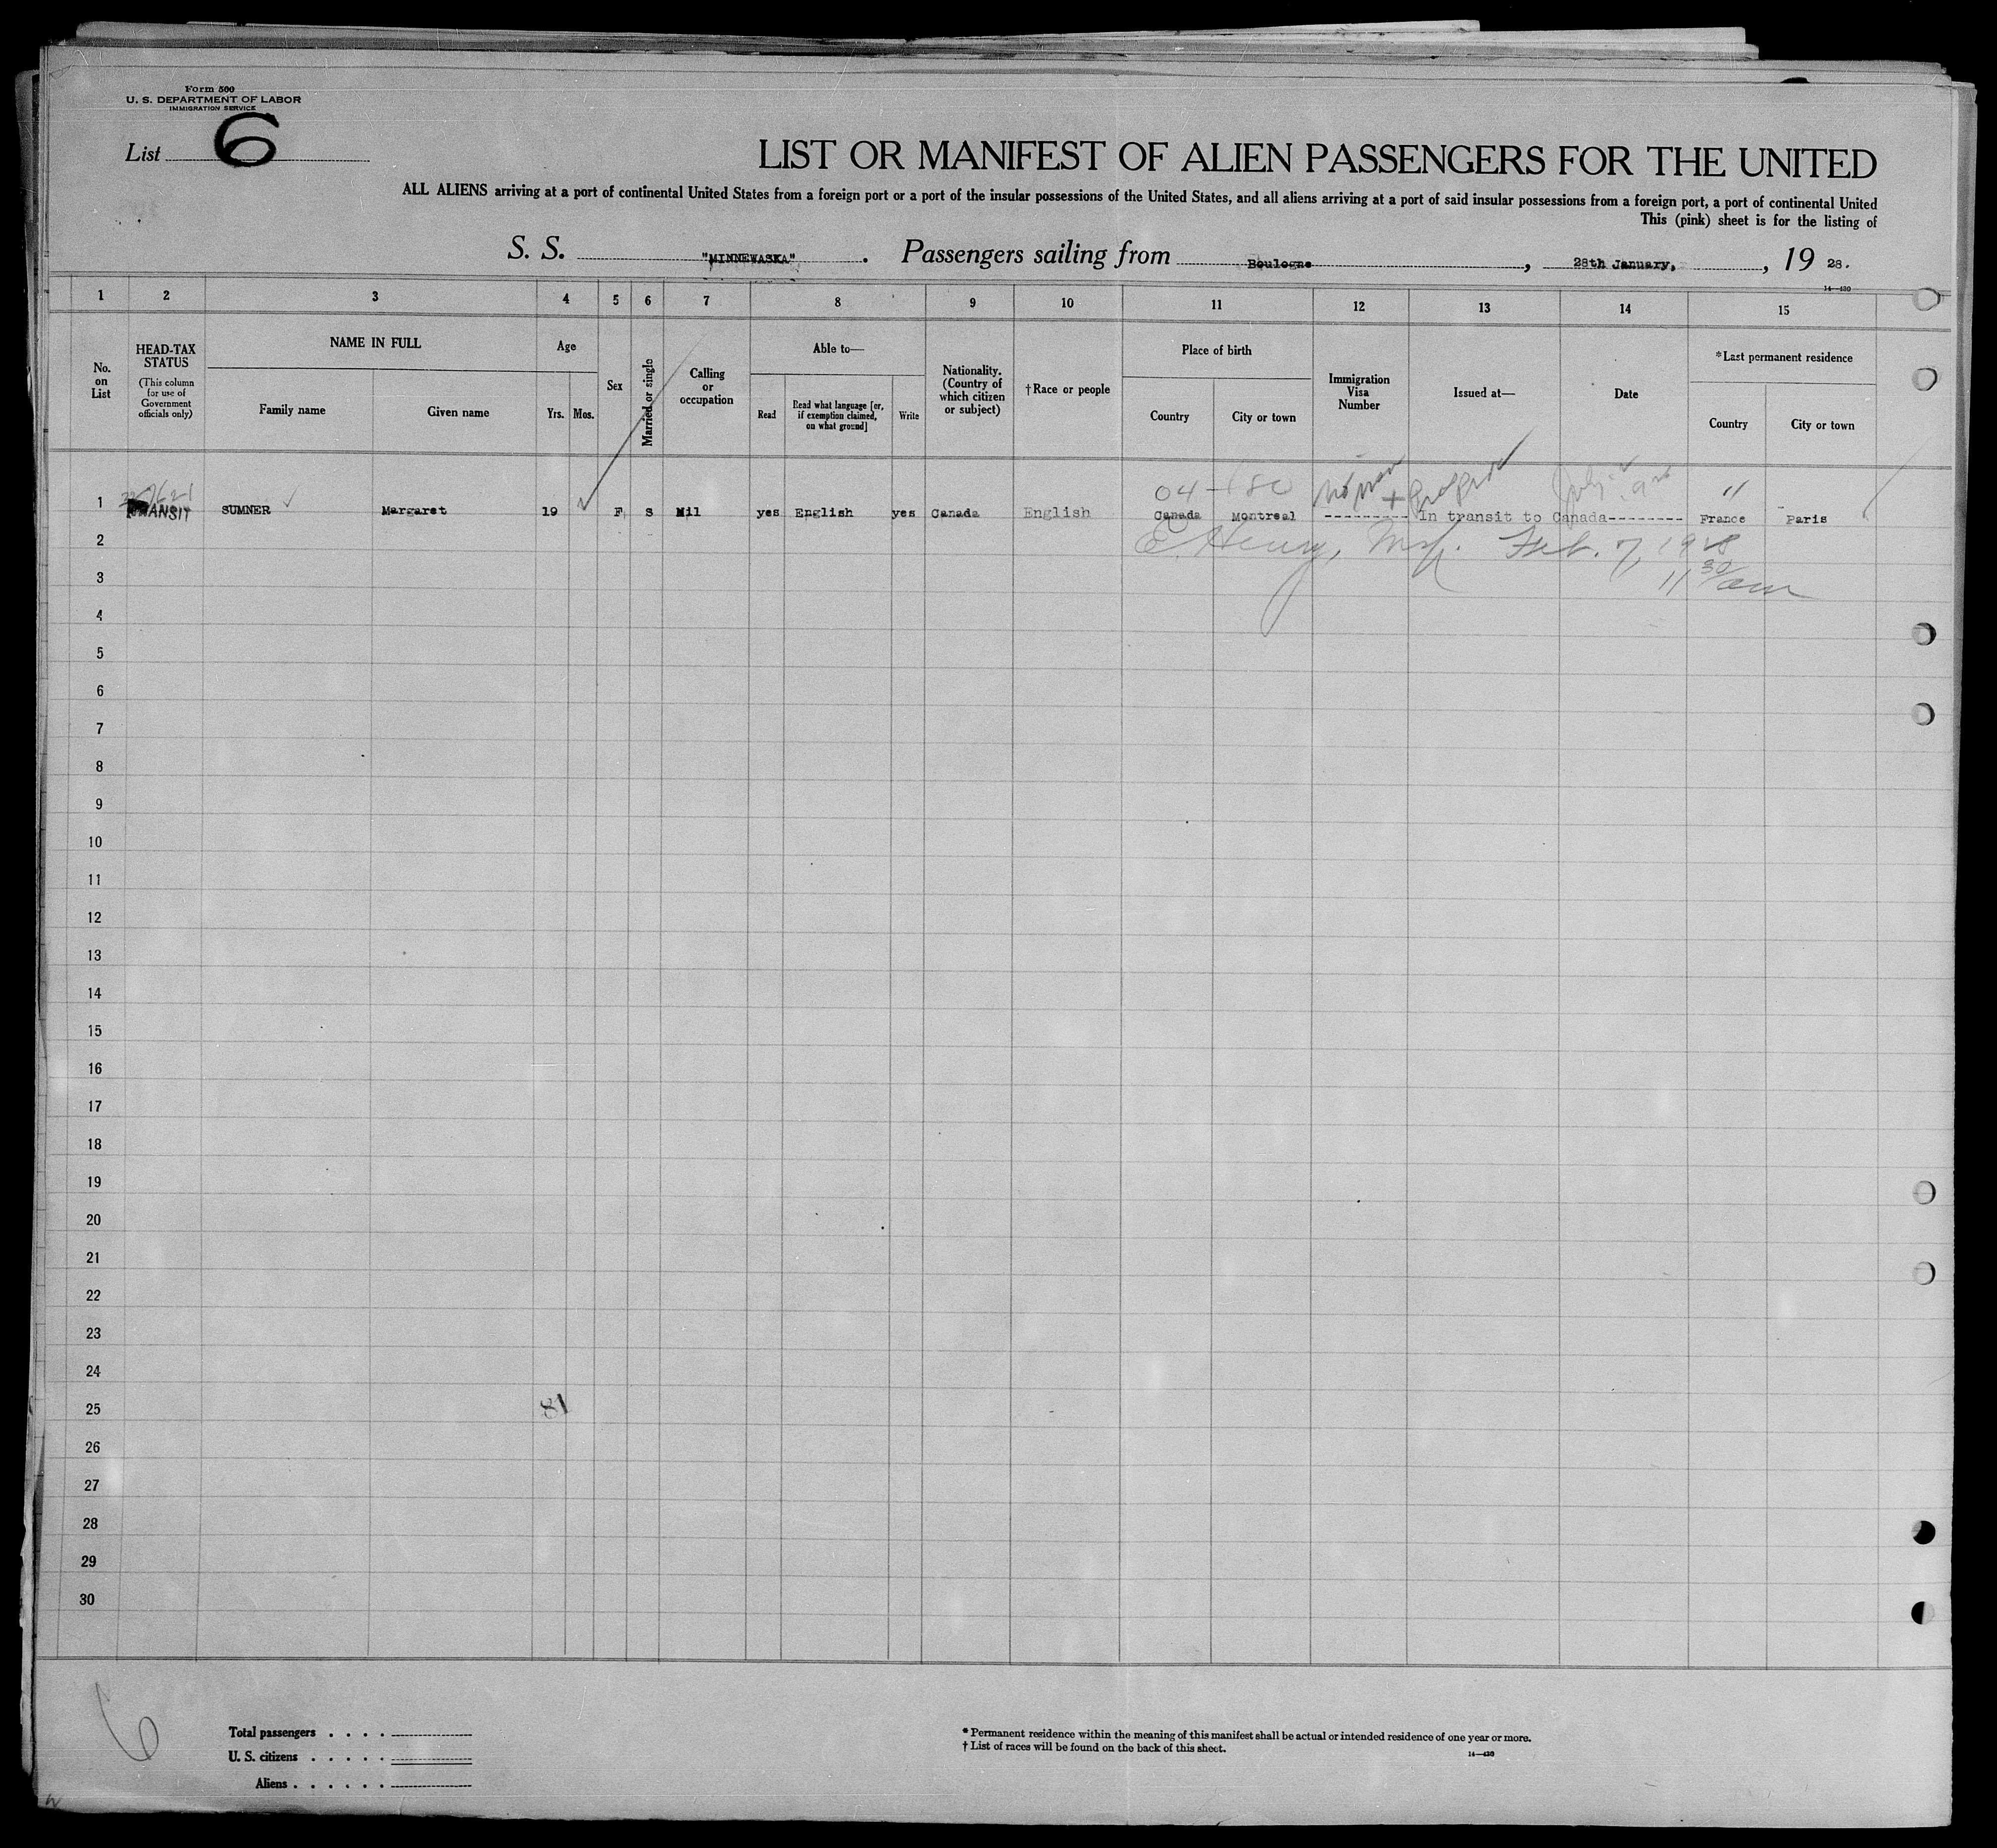 Form 500
U. S. DEPARTMENT OF LABOR
IMMIGRATION SERVICE
List 6
LIST OR MANIFEST OF ALIEN PASSENGERS FOR THE UNITED
ALL ALIENS arriving at a port of continental United States from a foreign port or a port of the insular possessions of the United States, and all aliens arriving at a port of said insular possessions from a foreign port, a port of continental United
This (pink) sheet is for the listing of
S. S. "MINNEWASKA". Passengers sailing from Boulogne, 28th January, , 19 28.
14—430
1 2 3 4 5 6 7 8 9 10 11 12 13 14 15
No. on List
HEAD-TAX STATUS
(This column for use of Government officials only)
NAME IN FULL
Family name Given name
Age
Yrs. Mos.
Sex
Married or single
Calling or occupation
Able to—
Read
Read what language [or, if exemption claimed, on what ground]
Write
Nationality. (Country of which citizen or subject)
†Race or people
Place of birth
Country City or town
Immigration Visa Number
Issued at—
Date
*Last permanent residence
Country City or town
04
1 TRANSIT SUMNER Margaret 19 F S Nil yes English yes Canada English Canada Montreal --------- In transit to Canada-------- France Paris
2 E. Henry, Feb. 7, 1928
3 11 30/am
4
5
6
7
8
9
10
11
12
13
14
15
16
17
18
19
20
21
22
23
24
25 81
26
27
28
29
30
6
Total passengers . . . .
U. S. citizens . . . . .
Aliens . . . . . .
* Permanent residence within the meaning of this manifest shall be actual or intended residence of one year or more.
† List of races will be found on the back of this sheet.
14—430